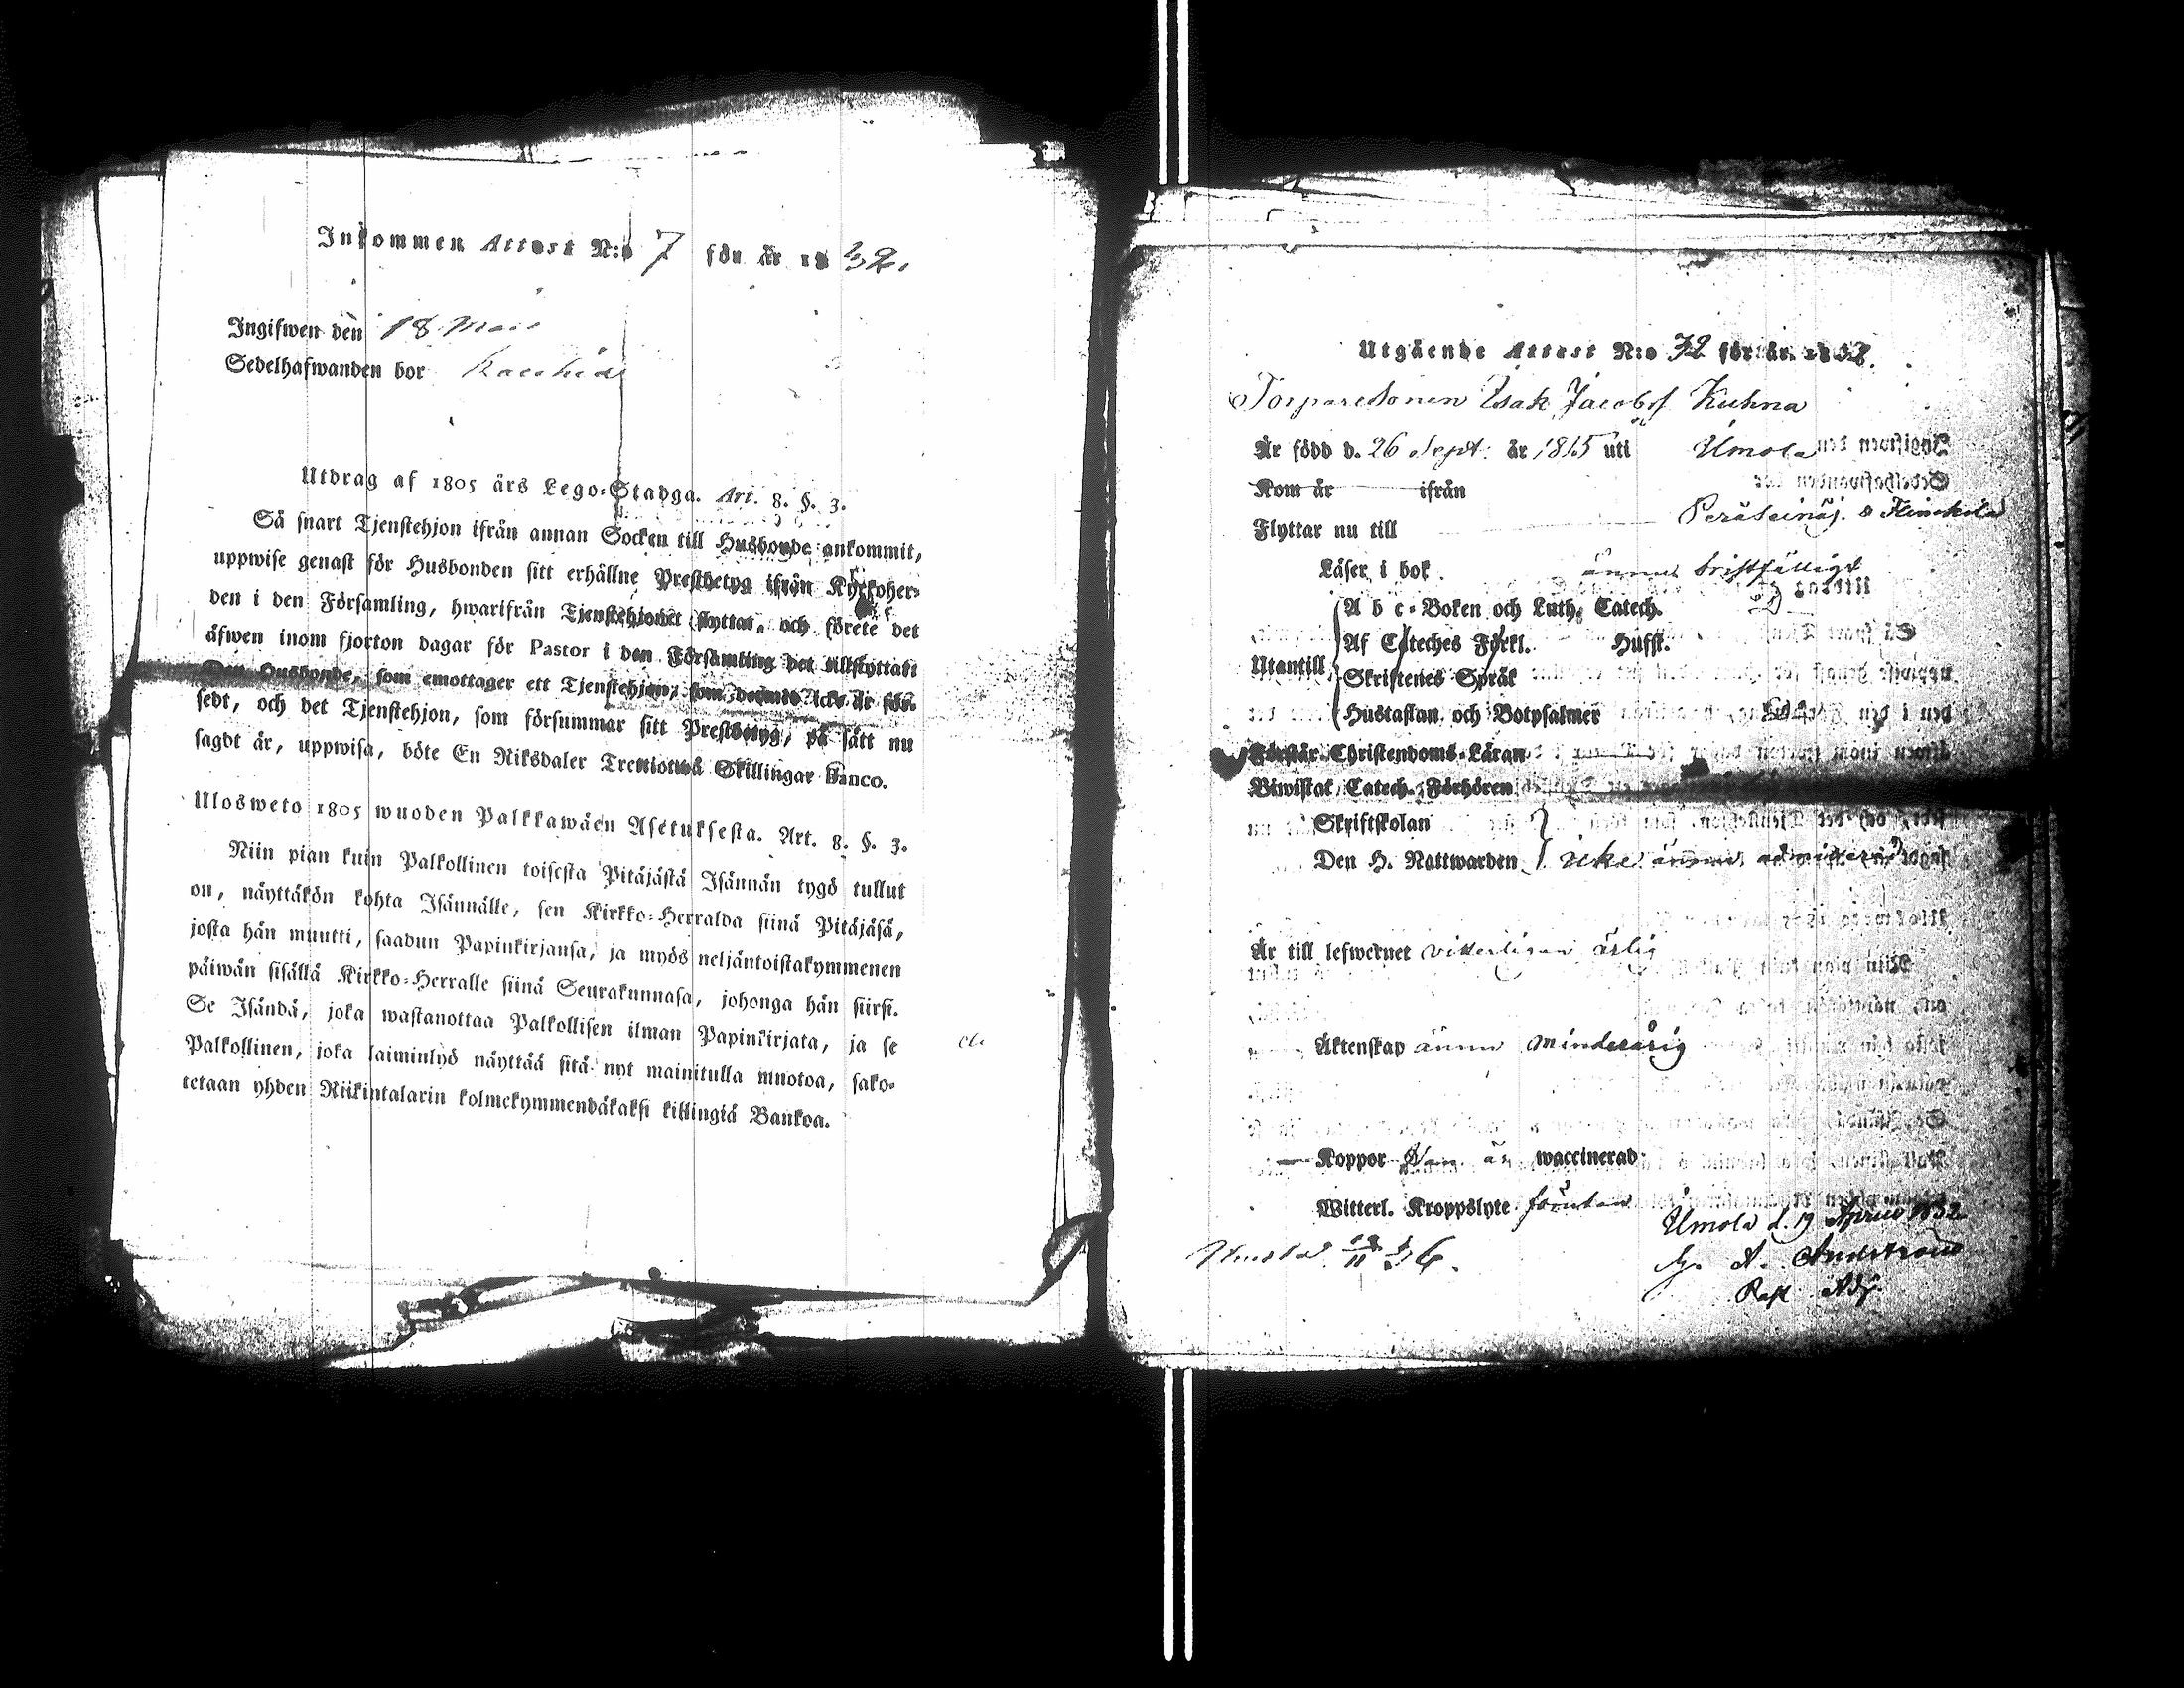 Inkommen Attest N:o 7 för år 1832.
Ingifwen den 18 Maii
Sedelhafwanden bor
Utdrag af 1805 års Lego-Stadga. Art. 8. §. 3.
Så snart Tjenstehjon ifrån annan Socken till Husbonde ankommit,
uppwise genast för Husbonden sitt erhållne Prestbetyg ifrån Kyrkoher-
den i den Församling, hwarifrån Tjenstehjonet flyttat, och förete det
äfwen inom fjorton dagar för Pastor i den Församling det tillflyttat.
Den Husbonde, som emottager ett Tjenstehjon, som dermed icke är för-
sedt, och det Tjenstehjon, som försummar sitt Prestbetyg, på sätt nu
sagdt är, uppwisa, böte En Riksdaler Trettiotwå Skillingar Banco.
Ulosweto 1805 wuoden Palkkawäen Asetuksesta. Art. 8. §. 3.
Niin pian kuin Palkollinen toisesta Pitäjästä Isännän tygö tullut
on, näyttäkön kohta Isännälle, sen Kirkko-Herralda siinä Pitäjäsä,
josta hän muutti, saadun Papinkirjansa, ja myös neljäntoistakymmenen
päiwän sisällä Kirkko-Herralle siinä Seurakunnasa, johonga hän siirsi.
Se Isändä, joka wastanottaa Palkollisen ilman Papinkirjata, ja se
Palkollinen, joka laiminlyö näyttää sitä nyt mainitulla muotoa, sako-
tetaan yhden Riikintalarin kolmekymmendäkaksi killingiä Bankoa.
Utgående Attest N:o 32 för år 1832.
Torparesonen Esak Jacobsf Kuhna
Är född d. 26 Sept: år 1815 uti Ilmola
Kom år ifrån
Flyttar nu till Peräseinäj.
Läser i bok ännu bristfälligt
A b c-Boken och Luth. Catech.
Af Cateches Förkl. Hufst.
Utantill
Skriftenes Språk
Hustaflan och Botpsalmer
Förstår Christendoms-Läran
Biwistat Catech. Förhören
Skriftskolan
Den H. Nattwarden icke ännu admitterad
Är till lefwernet vitterligen ärlig
Äktenskap ännu minderårig
Koppor är waccinerad
Witterl. Kroppslyte förutan
Ilmola d. 19 Aprill 1832
A. Andström
Past Adj.